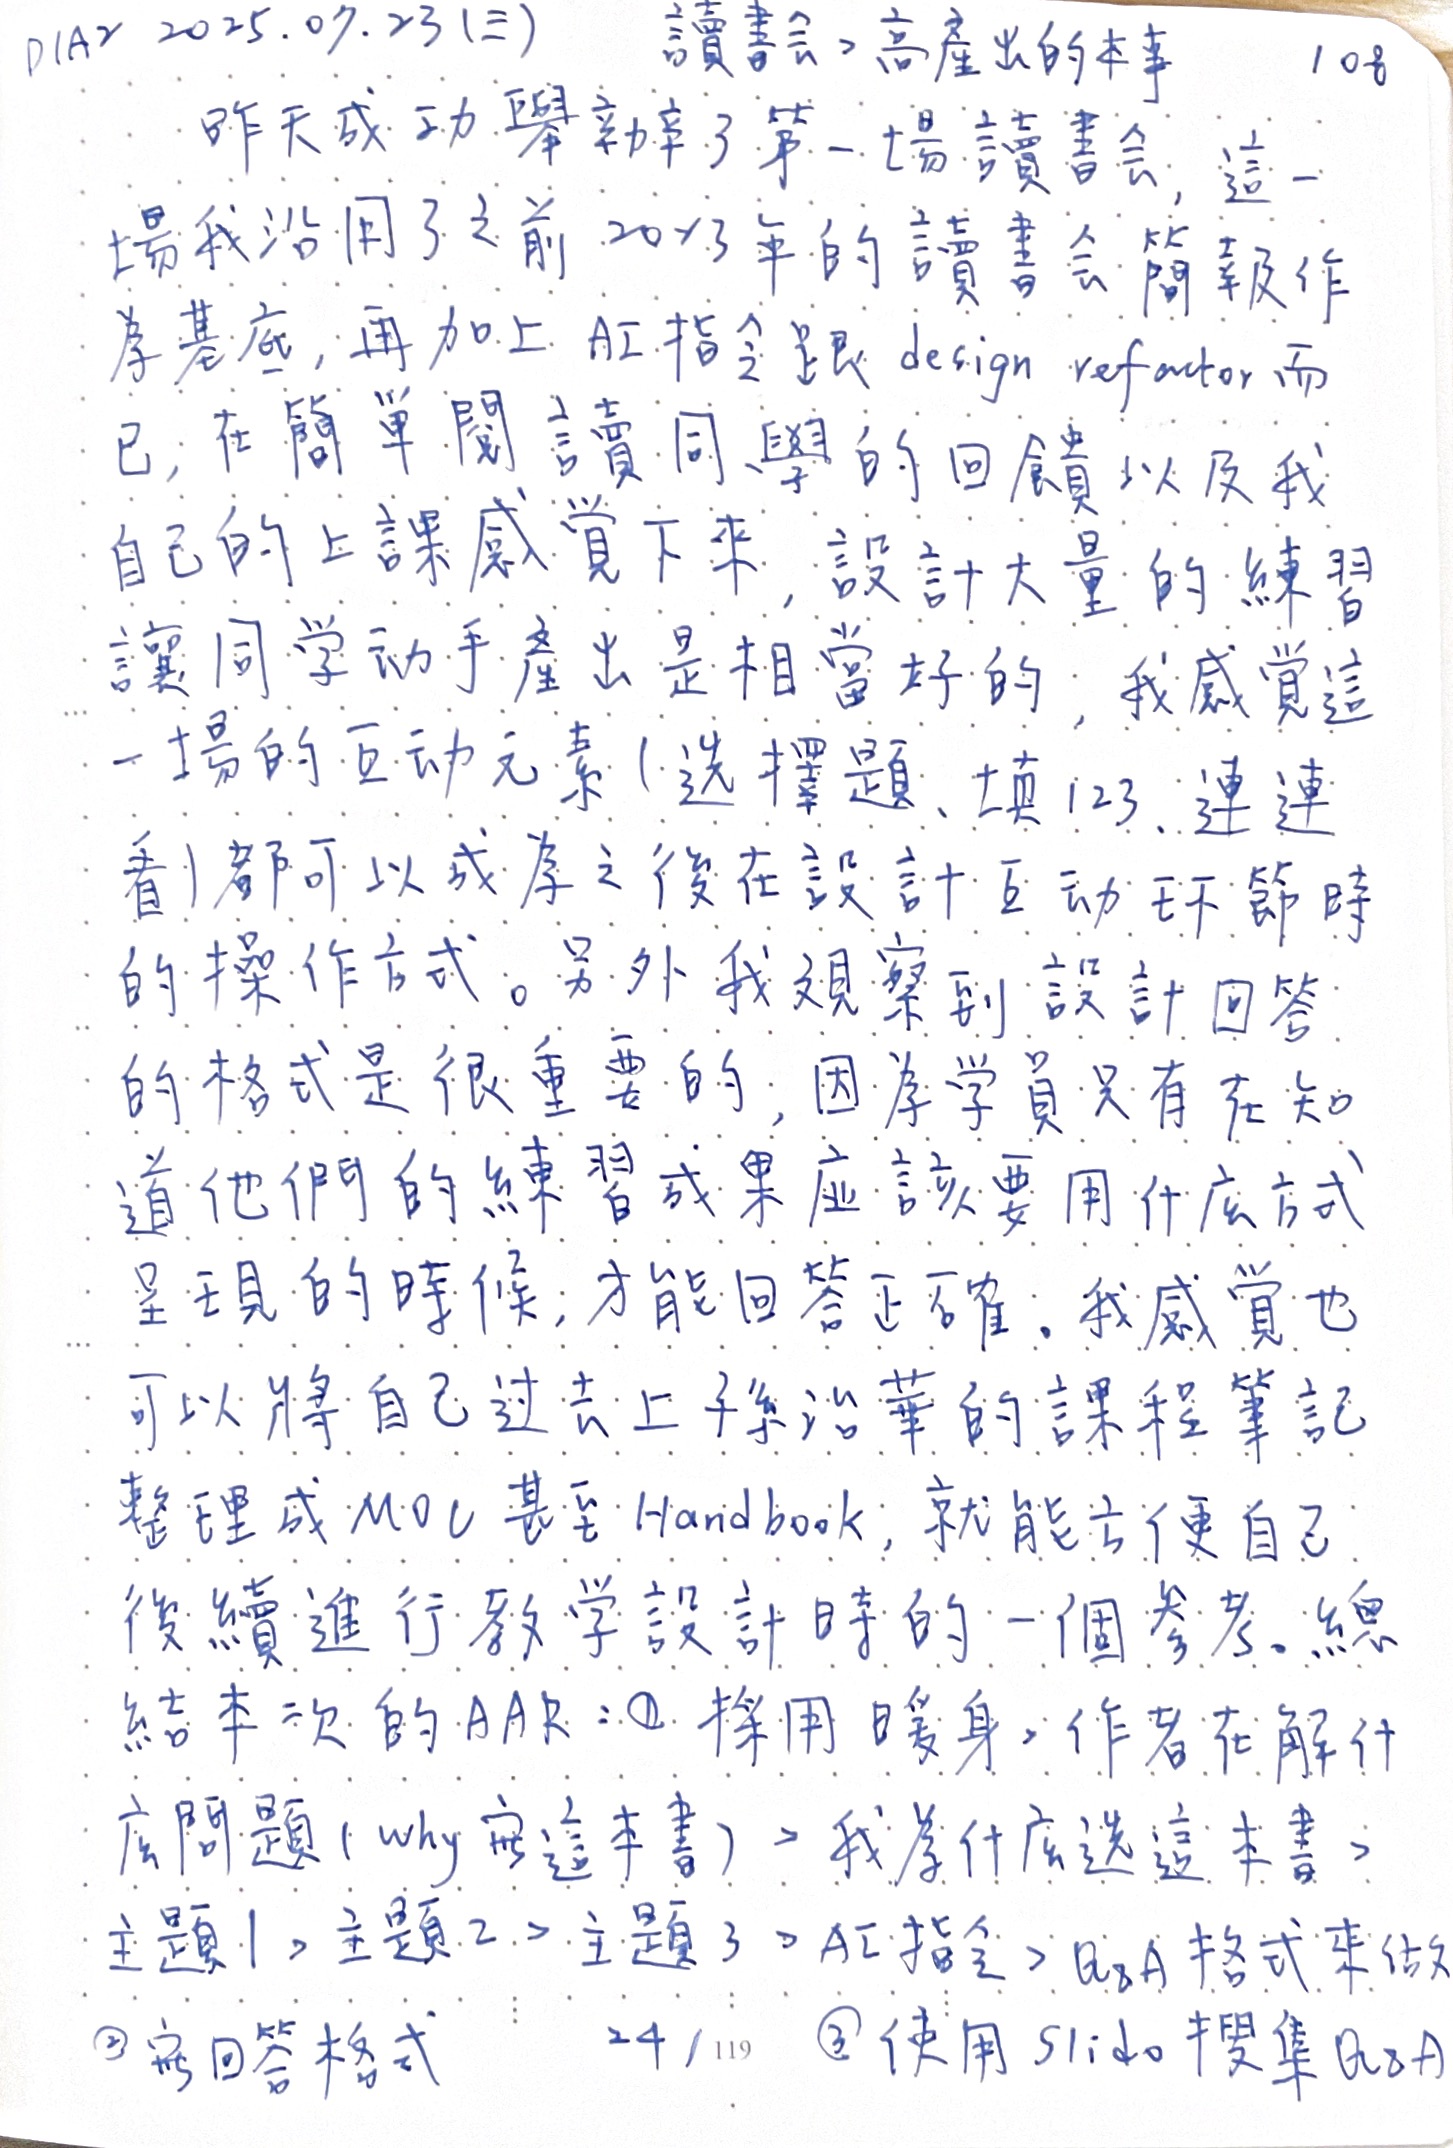 DIAY 2025.07.23(三) 讀書会>高產出的本事 108
昨天成功舉辦了第一場讀書会,這一
場我沿用了之前2023年的讀書会簡報作
為基底,再加上AI指令跟design refactor而
已,在簡單閱讀同學的回饋以及我
自己的上課感覚下來,設計大量的練習
讓同学动手產出是相當好的,我感覚這
一場的互动元素(选擇題、填123、連連
看)都可以成為之後在設計互动环節時
的操作方式。另外我观察到設計回答
的格式是很重要的,因為学員只有在知
道他們的練習成果应該要用什広方式
呈現的時候,才能回答正確。我感覚也
可以將自己过去上孫治華的課程筆記
整理成MOC甚至Handbook,就能方便自己
後續進行教学設計時的一個參考。總
結本次的AAR:① 採用暖身>作者在解什
広問題(why寫這本書)>我為什広选這本書>
主題1>主題2>主題3>AI指令>Q&A格式來做
②寫回答格式 24/119 ③使用Slido搜集Q&A